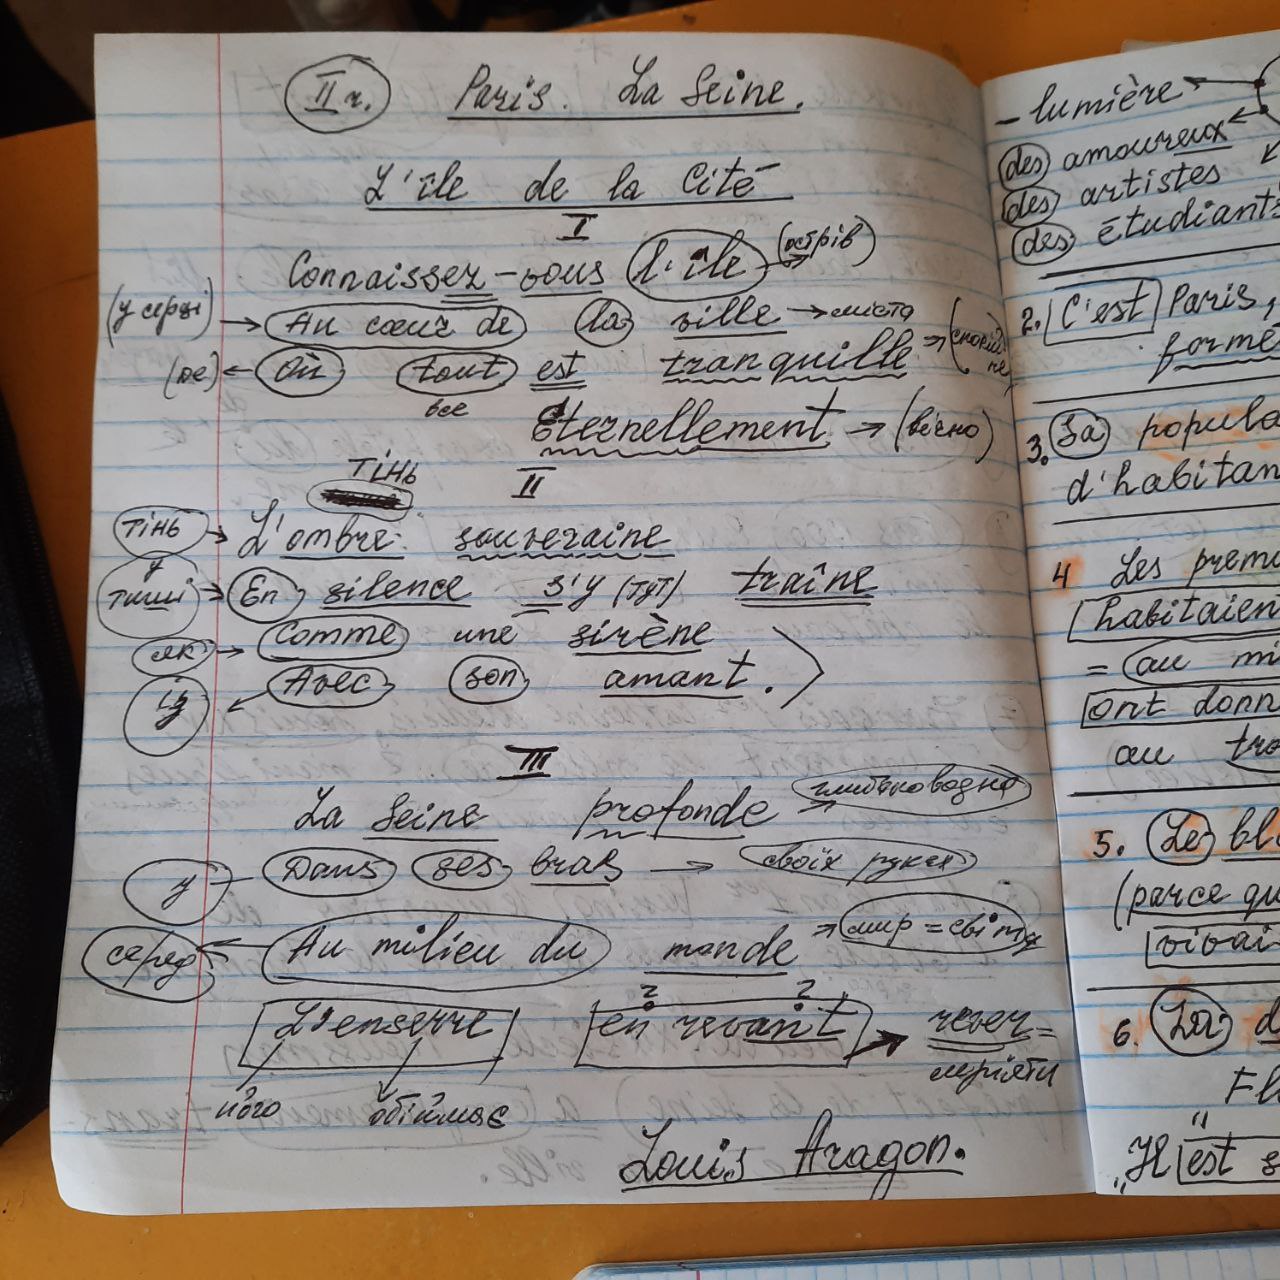 II ч. Paris. La Seine.
L'île de la Cité
I
Connaissez-vous l'île (острів)
(у серці) Au cœur de la ville місто
(де) Où tout est tranquille
все
éternellement (вічно)
тінь II
тінь L'ombre souveraine
у тиші En silence s'y (тут) traîne
як Comme une sirène
із Avec son amant.
III
La Seine profonde глибоководна
у Dans ses bras своїх руках
серед Au milieu du monde мир = світу
L'enserre en revant rever =
його обіймає мріяти
Louis Aragon.
- lumière
des amoureux
des artistes
des étudiants
2. C'est Paris,
forme
3. Sa popula
d'habitan
4 Les premi
habitaien
= au mi
ont donn
au
5. Le bl
(parce qu
vivai
6. La d
Fl
"Il est s